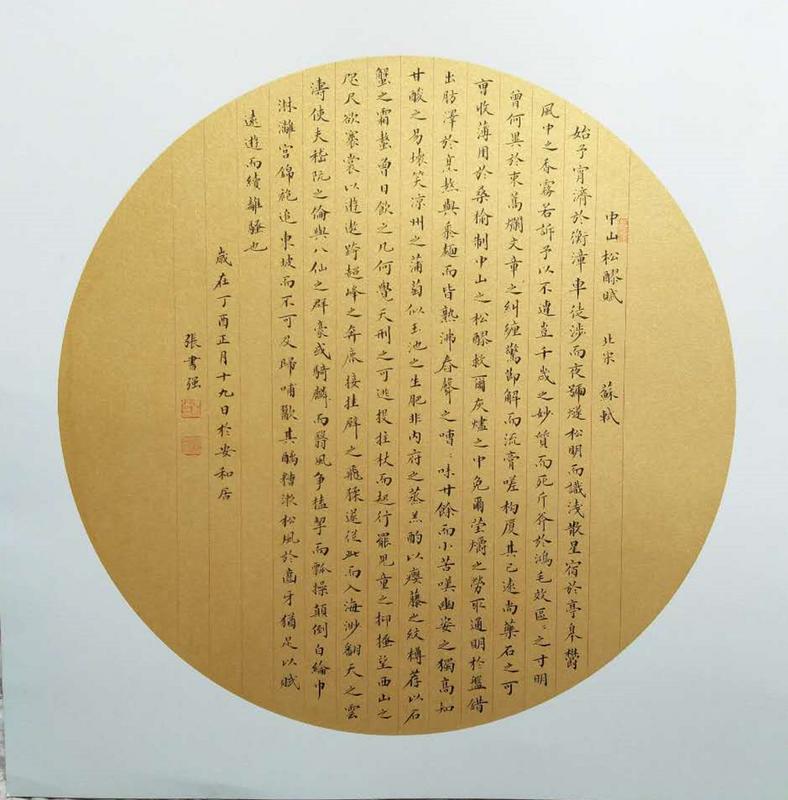 中山松醪賦 北宋 蘇軾
始予宵濟於衡漳車徒涉而夜號燧松明而識淺散星宿於亭皋鬱
風中之香霧若訴予以不遭豈千歲之妙質而死斤斧於鴻毛效區區之寸明
曾何異於束蒿爛文章之糾纏驚節解而流膏嗟构廈其已遠尚藥石之可
曹收薄用於桑榆制中山之松醪救爾灰燼之中免爾螢爝之勞取通明於盤錯
出肪澤於烹熬與黍麵而皆熟沸舂聲之嘈嘈味甘餘而小苦嘆幽姿之獨高知
甘酸之易壞笑涼州之蒲萄似玉池之生肥非內府之蒸羔酌以癭藤之紋樽荐以石
蟹之霜螯曾日飲之几何覺天刑之可逃投拄杖而起行罷兒童之抑搔望西山之
咫尺欲褰裳以遊遨跨超峰之奔鹿接挂壁之飛猱遂從此而入海渺翻天之雲
濤使夫嵇阮之倫與八仙之群豪或騎麟而翳鳳争榼挈而瓢操顛倒白綸巾
淋漓宮錦袍追東坡而不可及歸哺歠其醨糟漱松風於齒牙猶足以賦
遠遊而續離騷也
歲在丁酉正月十九日於安和居
張書强